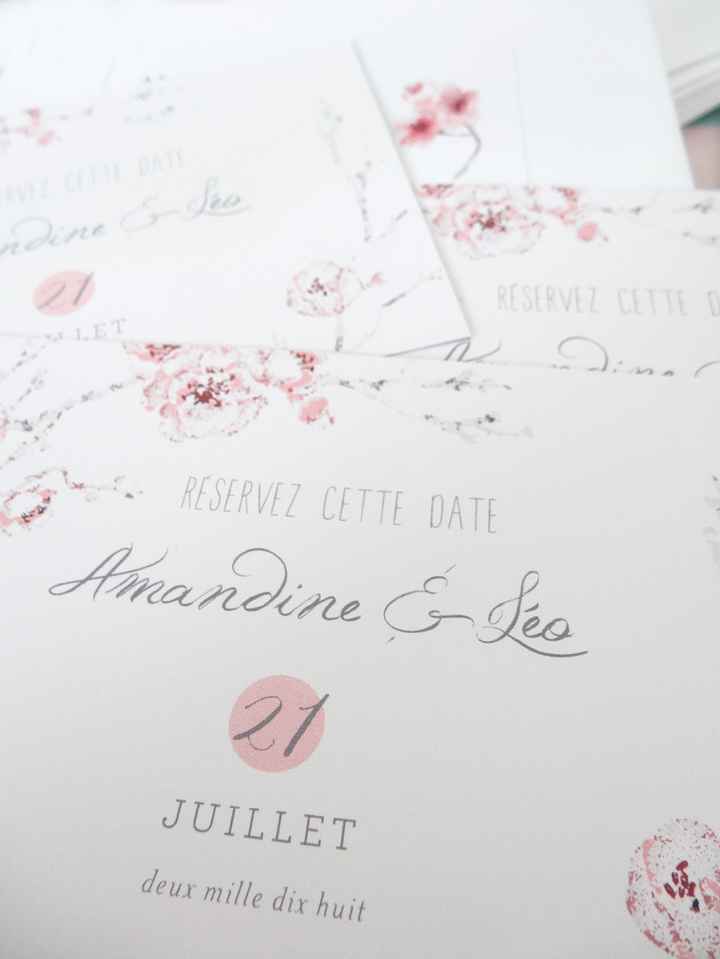 RVEZ CETTE DATE
ndine & Léo
21
LLET
RÉSERVEZ CETTE D
Amandine
RÉSERVEZ CETTE DATE
Amandine & Léo
21
JUILLET
deux mille dix huit